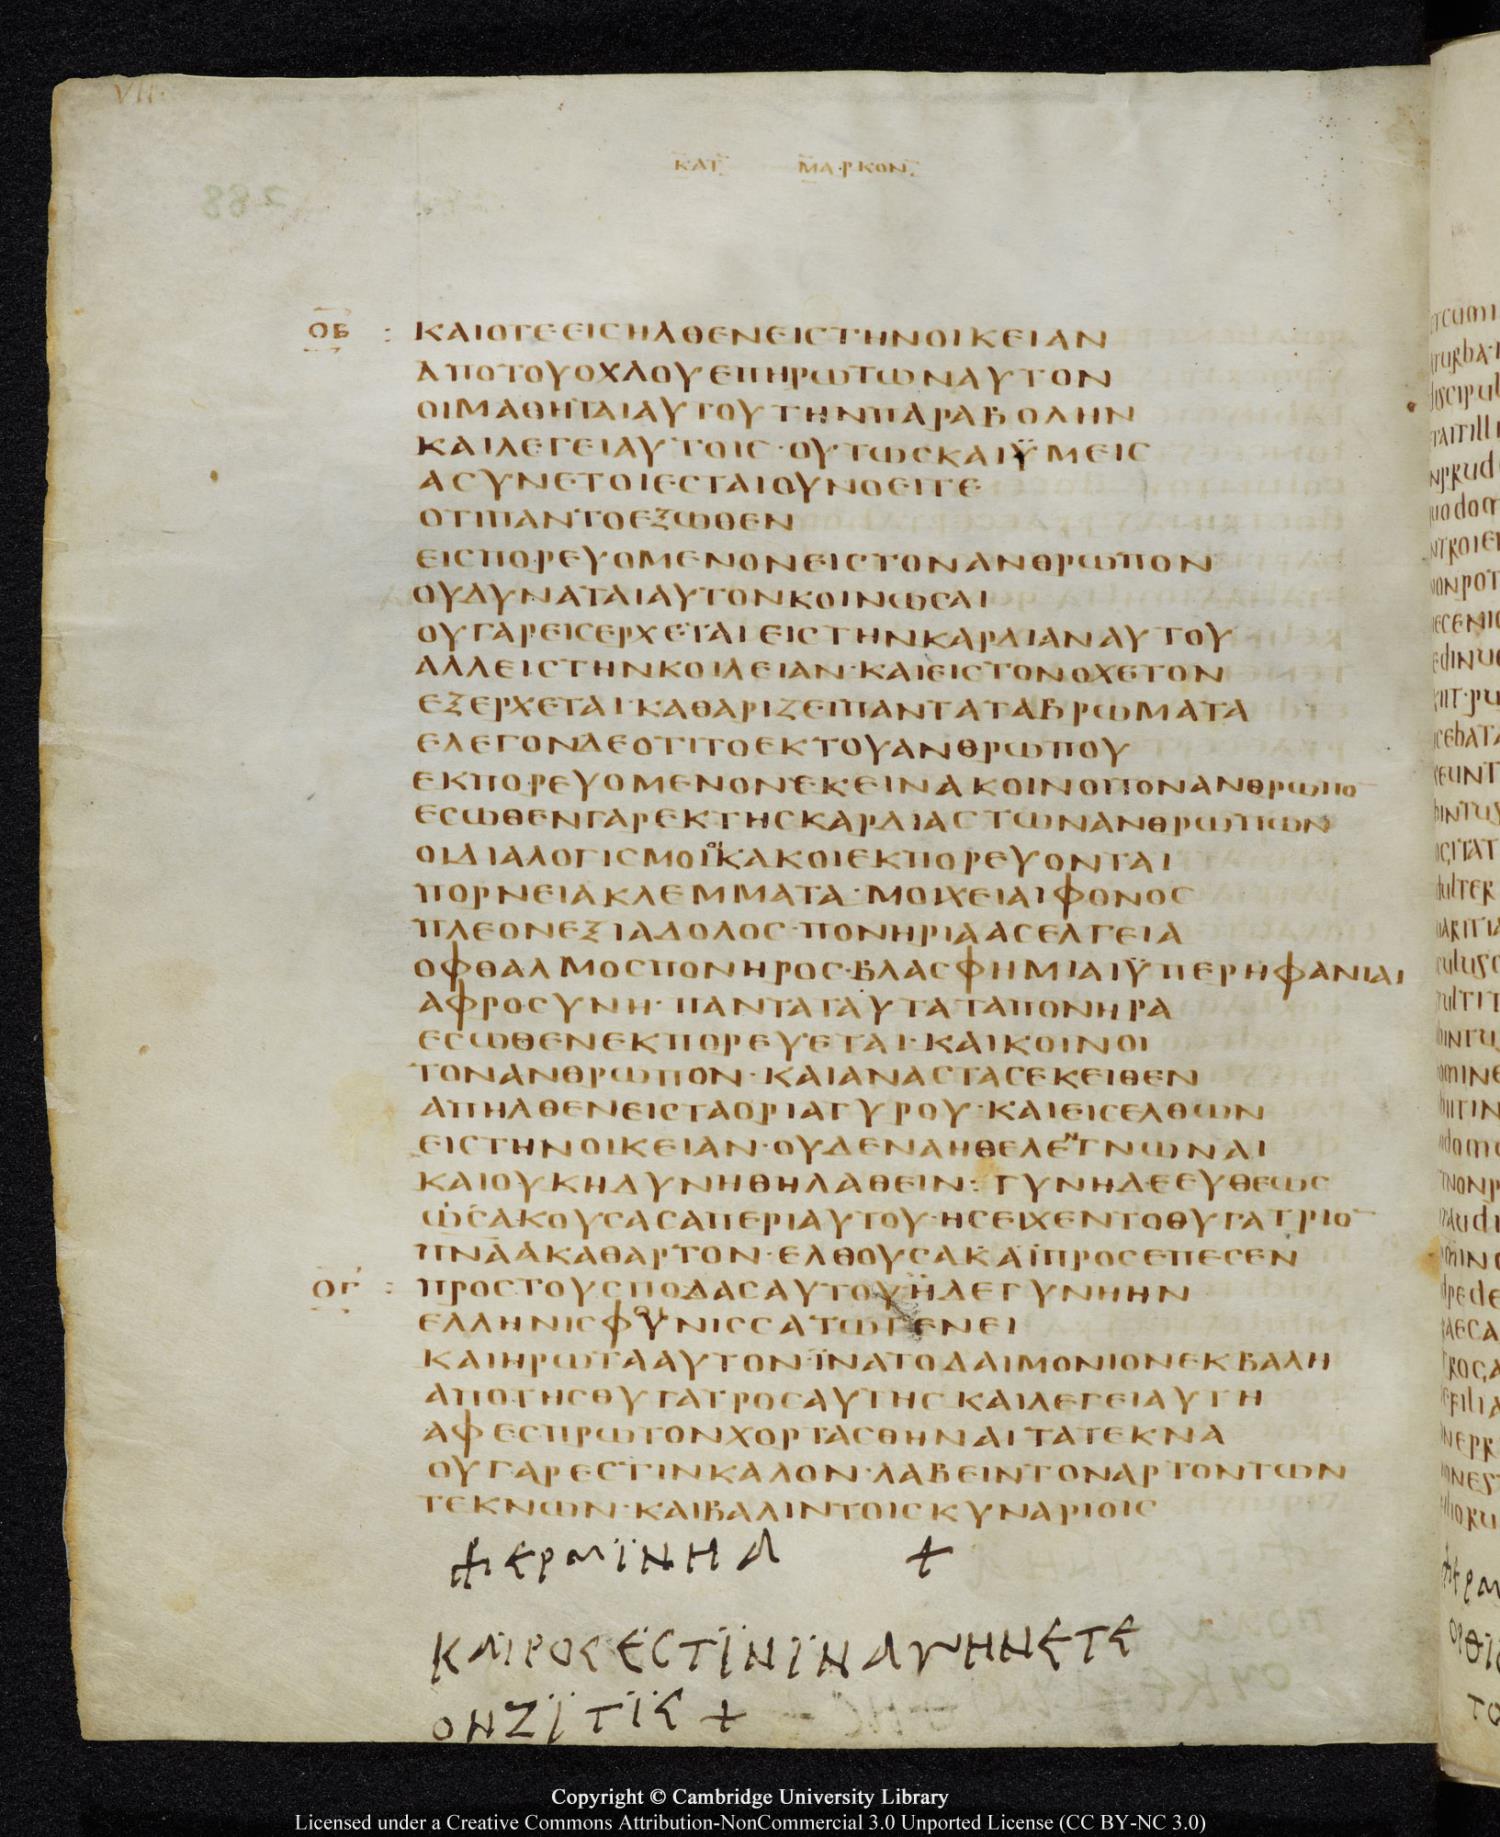 VII
ΚΑΤ ΜΑΡΚΟΝ
288
ΟΒ : ΚΑΙΟΤΕΕΙCΗΛΘΕΝΕΙCΤΗΝΟΙΚΕΙΑΝ
ΑΠΟΤΟΥΟΧΛΟΥΕΠΗΡΩΤΩΝΑΥΤΟΝ
ΟΙΜΑΘΗΤΑΙΑΥΤΟΥΤΗΝΠΑΡΑΒΟΛΗΝ
ΚΑΙΛΕΓΕΙΑΥΤΟΙC·ΟΥΤΩCΚΑΙΫΜΕΙC
ΑCΥΝΕΤΟΙΕCΤΑΙΟΥΝΟΕΙΤΕ
ΟΤΙΠΑΝΤΟΕΞΩΘΕΝ
ΕΙCΠΟΡΕΥΟΜΕΝΟΝΕΙCΤΟΝΑΝΘΡΩΠΟΝ
ΟΥΔΥΝΑΤΑΙΑΥΤΟΝΚΟΙΝΩCΑΙ
ΟΥΓΑΡΕΙCΕΡΧΕΤΑΙΕΙCΤΗΝΚΑΡΔΙΑΝΑΥΤΟΥ
ΑΛΛΕΙCΤΗΝΚΟΙΛΕΙΑΝ·ΚΑΙΕΙCΤΟΝΟΧΕΤΟΝ
ΕΞΕΡΧΕΤΑΙ·ΚΑΘΑΡΙΖΕΙΠΑΝΤΑΤΑΒΡΩΜΑΤΑ
ΕΛΕΓΟΝΔΕΟΤΙΤΟΕΚΤΟΥΑΝΘΡΩΠΟΥ
ΕΚΠΟΡΕΥΟΜΕΝΟΝΕΚΕΙΝΑΚΟΙΝΟΙΤΟΝΑΝΘΡΩΠΟ¯
ΕCΩΘΕΝΓΑΡΕΚΤΗCΚΑΡΔΙΑCΤΩΝΑΝΘΡΩΠΩΝ
ΟΙΔΙΑΛΟΓΙCΜΟΙΟΙΚΑΚΟΙΕΚΠΟΡΕΥΟΝΤΑΙ
ΠΟΡΝΕΙΑΚΛΕΜΜΑΤΑ·ΜΟΙΧΕΙΑΙΦΟΝΟC
ΠΛΕΟΝΕΞΙΑΔΟΛΟC·ΠΟΝΗΡΙΑΑCΕΛΓΕΙΑ
ΟΦΘΑΛΜΟCΠΟΝΗΡΟC·ΒΛΑCΦΗΜΙΑΙΫΠΕΡΗΦΑΝΙΑΙ
ΑΦΡΟCΥΝΗ·ΠΑΝΤΑΤΑΥΤΑΤΑΠΟΝΗΡΑ
ΕCΩΘΕΝΕΚΠΟΡΕΥΕΤΑΙ·ΚΑΙΚΟΙΝΟΙ
ΤΟΝΑΝΘΡΩΠΟΝ·ΚΑΙΑΝΑCΤΑCΕΚΕΙΘΕΝ
ΑΠΗΛΘΕΝΕΙCΤΑΟΡΙΑΤΥΡΟΥ·ΚΑΙΕΙCΕΛΘΩΝ
ΕΙCΤΗΝΟΙΚΕΙΑΝ·ΟΥΔΕΝΑΗΘΕΛΕΝΓΝΩΝΑΙ
ΚΑΙΟΥΚΗΔΥΝΗΘΗΛΑΘΕΙΝ:ΓΥΝΗΔΕΕΥΘΕΩC
ΩCΑΚΟΥCΑCΑΠΕΡΙΑΥΤΟΥ·ΗCΕΙΧΕΝΤΟΘΥΓΑΤΡΙΟ¯
ΠΝΑΑΚΑΘΑΡΤΟΝ·ΕΛΘΟΥCΑΚΑΪΠΡΟCΕΠΕCΕΝ
ΟΓ : ΠΡΟCΤΟΥCΠΟΔΑCΑΥΤΟΥΗΔΕΓΥΝΗΗΝ
ΕΛΛΗΝΙCΦΟΥΝΙCCΑΤΩΓΕΝΕΙ
ΚΑΙΗΡΩΤΑΑΥΤΟΝ·ΪΝΑΤΟΔΑΙΜΟΝΙΟΝΕΚΒΑΛΗ
ΑΠΟΤΗCΘΥΓΑΤΡΟCΑΥΤΗCΚΑΙΛΕΓΕΙΑΥΤΗ
ΑΦΕCΠΡΩΤΟΝΧΟΡΤΑCΘΗΝΑΙΤΑΤΕΚΝΑ
ΟΥΓΑΡΕCΤΙΝΚΑΛΟΝ·ΛΑΒΕΙΝΤΟΝΑΡΤΟΝΤΩΝ
ΤΕΚΝΩΝ·ΚΑΙΒΑΛΙΝΤΟΙCΚΥΝΑΡΙΟΙC
ΕΡΜΪΝΗΑ +
ΚΑΙΡΟCΕCΤΪΝΪΝΑΓΗΝΕΤΕ
ΟΝΖΪΤΪC +
Copyright © Cambridge University Library
Licensed under a Creative Commons Attribution-NonCommercial 3.0 Unported License (CC BY-NC 3.0)